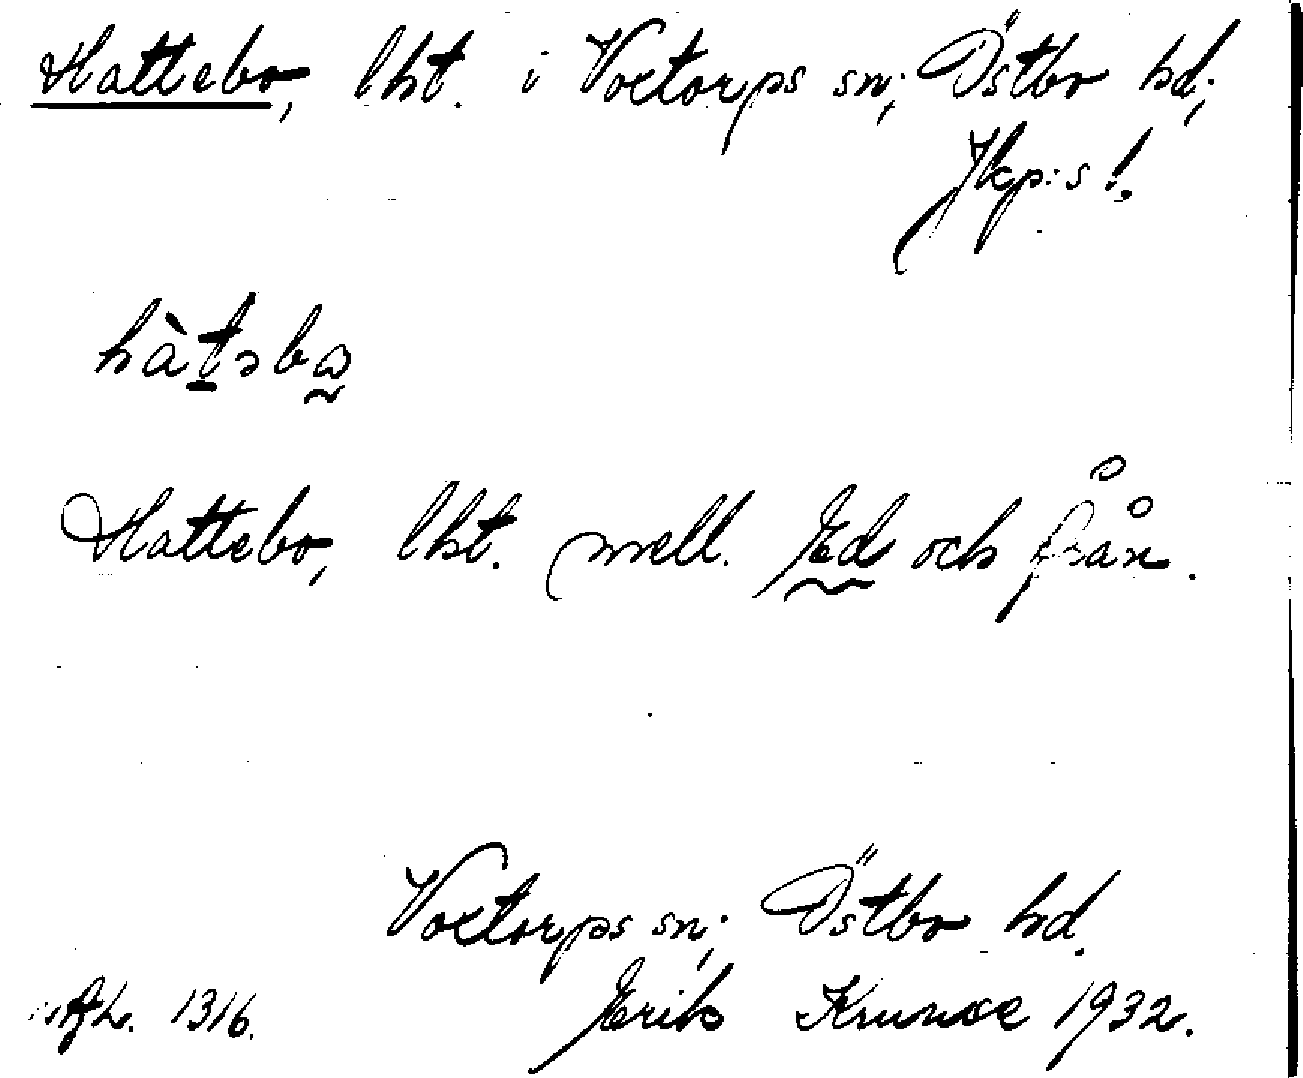 Hattebo, lht. i Voxtorps sn; Östbo hd;
Jkp:s l.
hàtəbω
Hattebo, lht. mell. Ed och från.
Voxtorps sn; Östbo hd.
1316. Erik 1932.